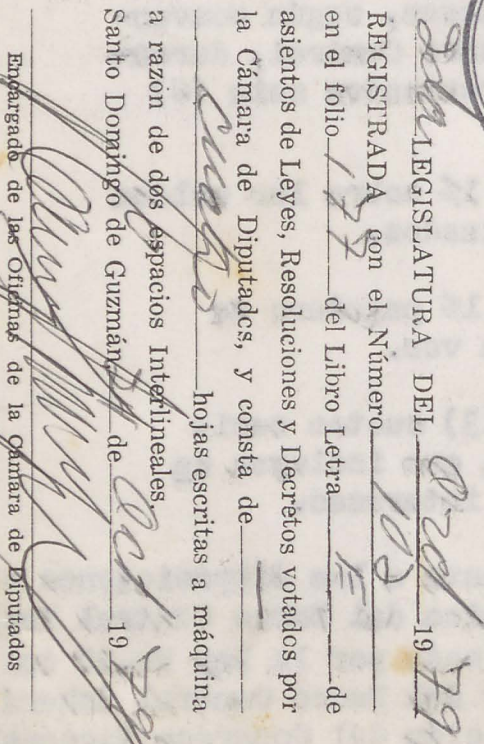 2da LEGISLATURA DEL Ord 1979
REGISTRADA con el Número
en el folio 177 del Libro Letra de
asientos de Leyes, Resoluciones y Decretos votados por
la Cámara de Diputados, y consta de
Cuatro hojas escritas a máquina
razón de dos espacios Interlineales.
Santo Domingo de Guzmán, de 1979
Encargado de las Oficinas de la Cámara de Diputados